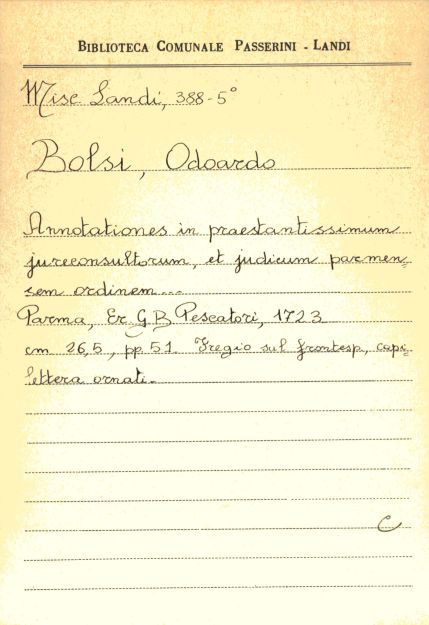 BIBLIOTECA COMUNALE PASSERINI - LANDI
Misc Landi, 388-5°
Bolsi, Odoardo
Annotationes in praestantissimum
jureconsultorum, et judicum parmen=
sem ordinem...
Parma, Er. G.B. Pescatori, 1723
cm 26,5, pp. 51. Fregio sul frontesp., capi=
lettera ornati.
C